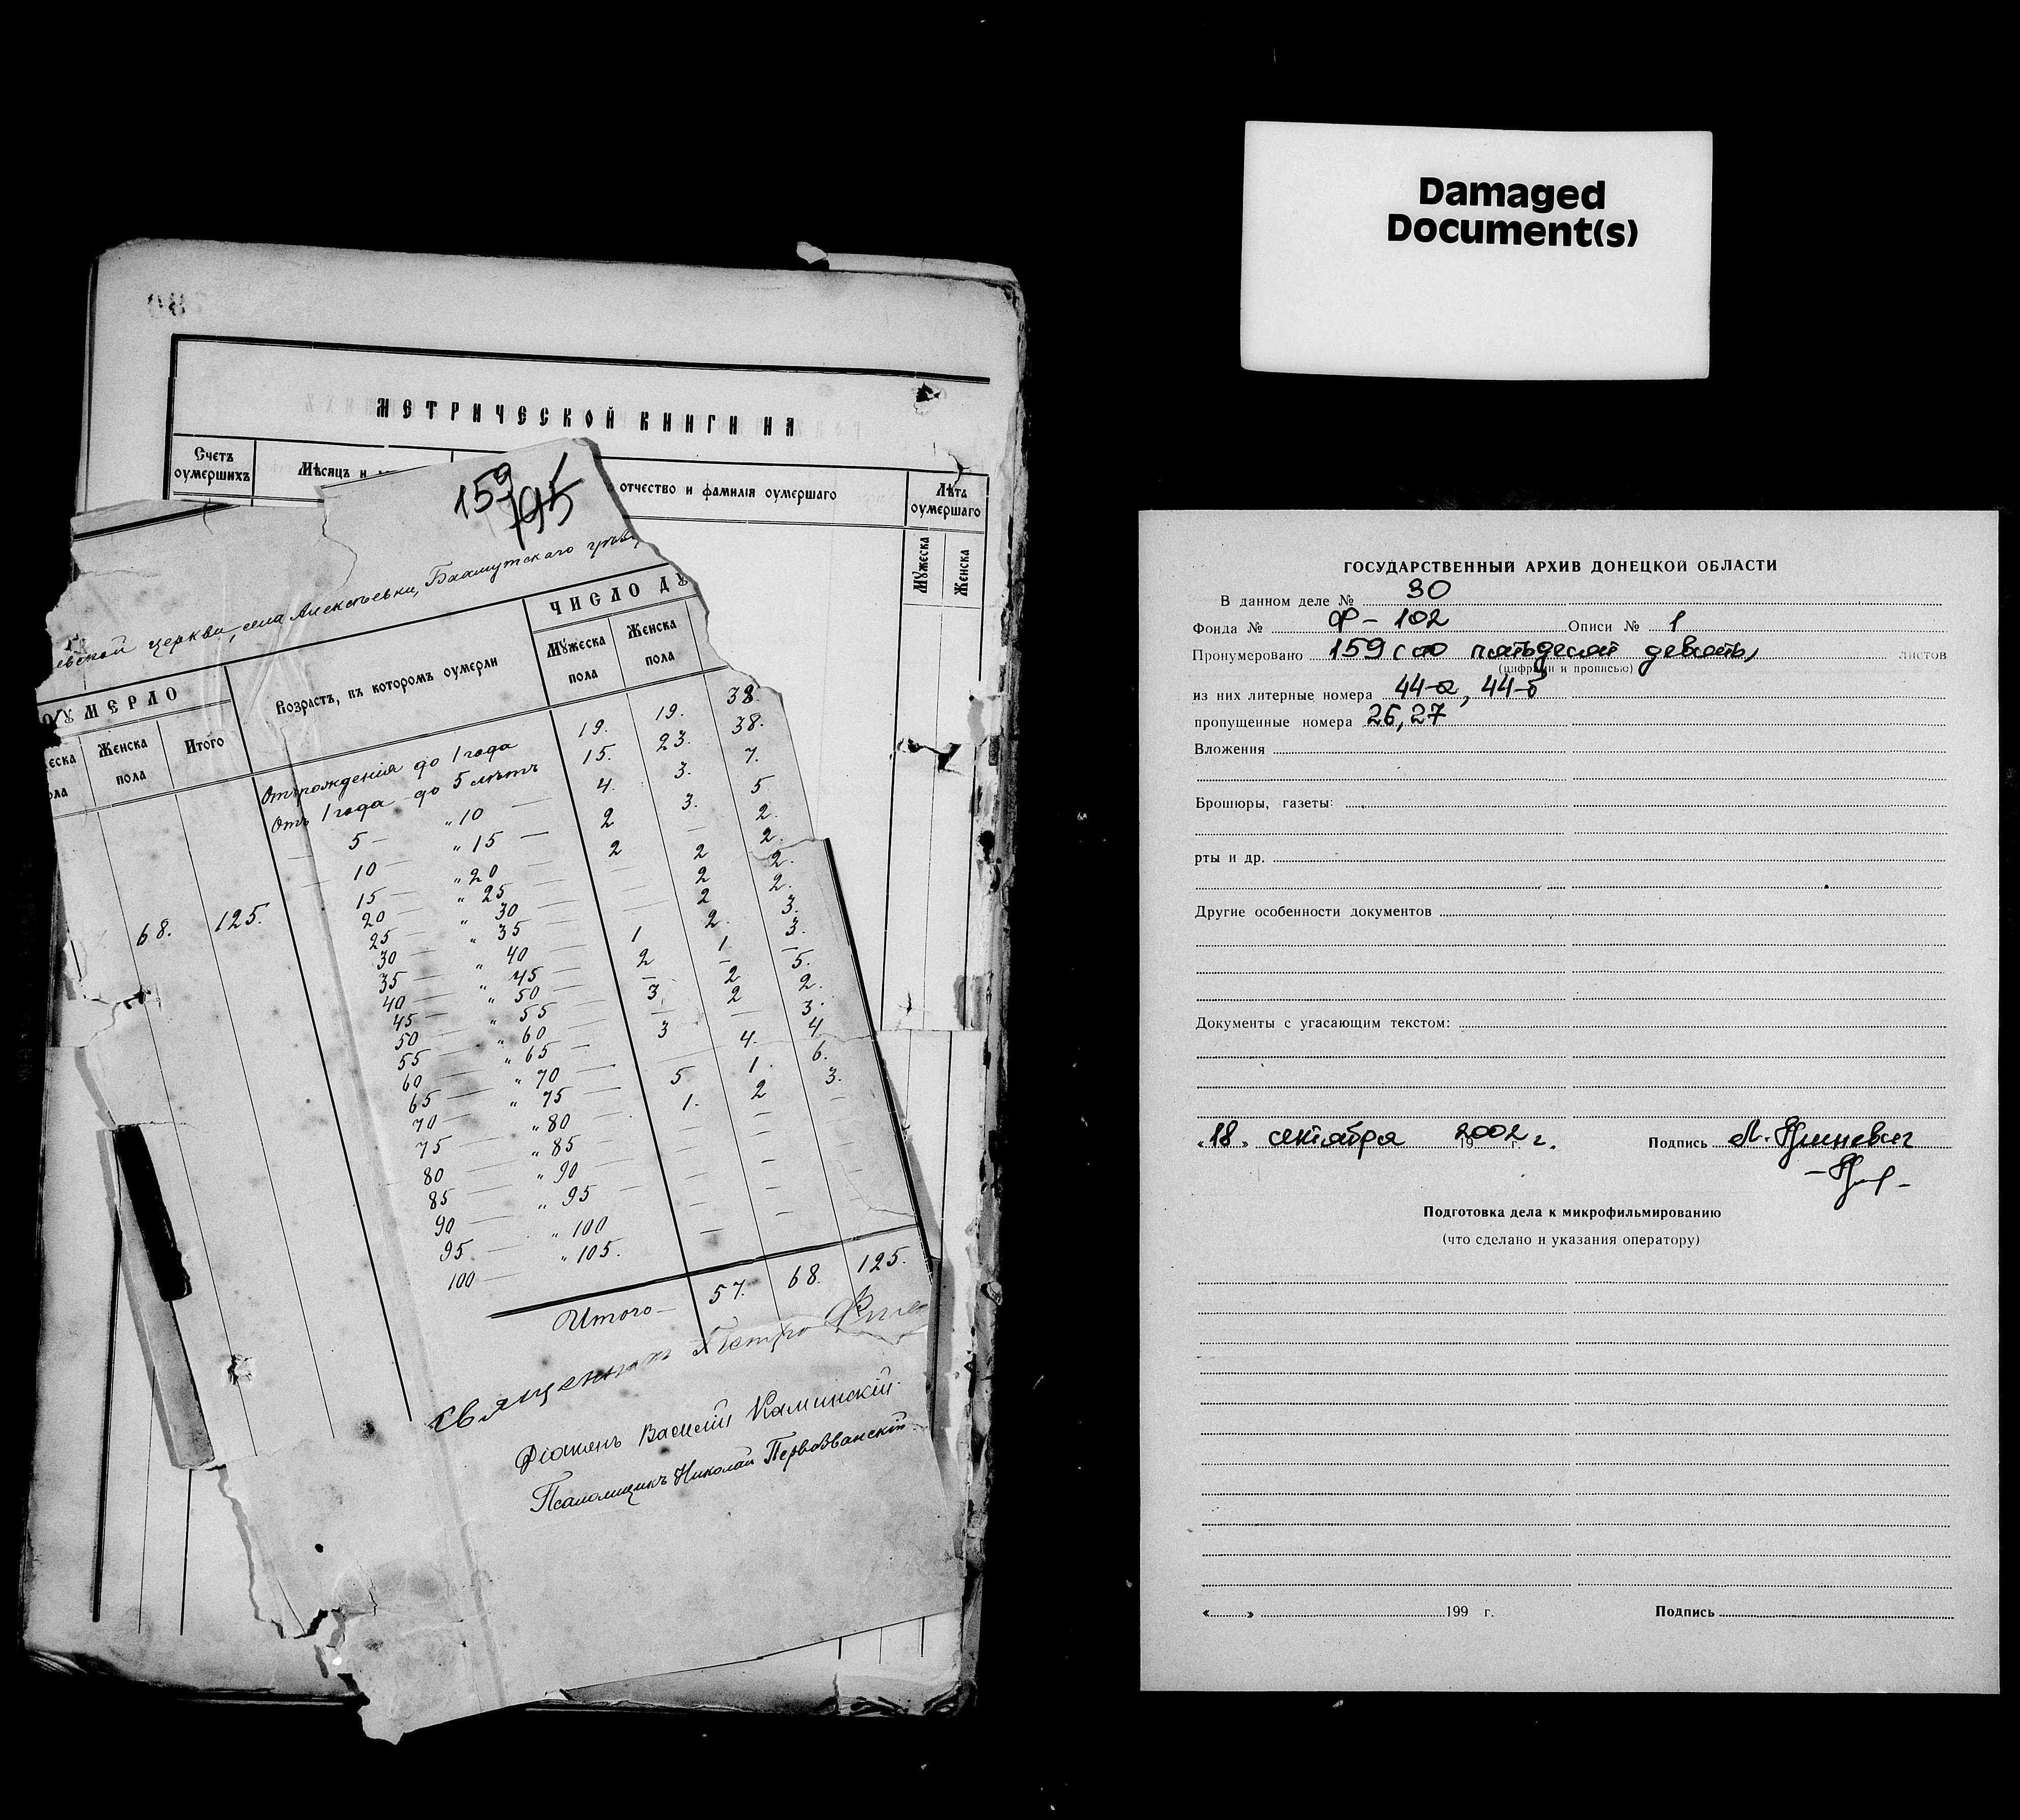 МЕТРИЧЕСКОЙ КНИГИ НА
Счетъ оумершихъ
Мѣсяцъ и
отчество и фамилія оумершаго
Лѣта оумершаго
Мужеска
Женска
159
795
евской церкви, села Алексѣевки, Бахмутскаго
ОУМЕРЛО
Возрастъ, въ которомъ оумерли
ЧИСЛО ДУ
Мужеска пола
Женска пола
Женска пола
Итого
68. 125.
Отъ рожденія до 1 года 19. 19. 38.
Отъ 1 года до 5 лѣтъ 15. 23. 38.
5 — " 10 — 4. 3. 7.
10 — " 15 — 2 3. 5
15 — " 20 — 2 — 2.
20 — " 25 — — 2 2.
25 — " 30 — — 2 2.
30 — " 35 — — 2 2.
35 — " 40 — 1 2. 3.
40 — " 45 — 2 1. 3.
45 — " 50 — — — —
50 — " 55 — 3. 2 5.
55 — " 60 — — 2 2.
60 — " 65 — 3 — 3.
65 — " 70 — — 4. 4
70 — " 75 — 5 1. 6.
75 — " 80 1. 2 3.
80 — " 85 — — —
85 — " 90 — —
90 — " 95 — — —
95 — " 100 — —
100 — " 105. —
Итого — 57. 68. 125.
Священникъ Петръ
Діаконъ Василій Каминскій.
Псаломщикъ Николай Первозванскій.
Damaged
Document(s)
ГОСУДАРСТВЕННЫЙ АРХИВ ДОНЕЦКОЙ ОБЛАСТИ
В данном деле № 30
Фонда № Ф-102 Описи № 1
Пронумеровано 159 (сто пятьдесят девять) листов
(цифрами и прописью)
из них литерные номера 44-а, 44-б
пропущенные номера 26, 27
Вложения
Брошюры, газеты:
рты и др.
Другие особенности документов
Документы с угасающим текстом:
« 18 » сентября 2002 г. Подпись
Подготовка дела к микрофильмированию
(что сделано и указания оператору)
« » 199 г. Подпись